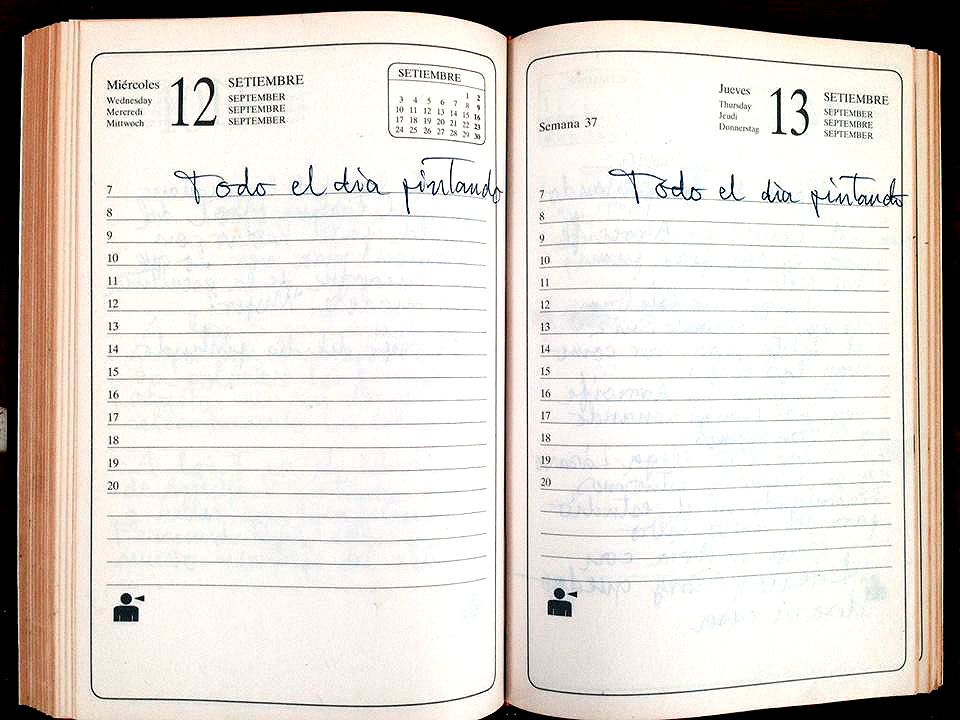 Miércoles
Wednesday
Mercredi
Mittwoch
12
SETIEMBRE
SEPTEMBER
SEPTEMBRE
SEPTEMBER
SETIEMBRE
1 2
3 4 5 6 7 8 9
10 11 12 13 14 15 16
17 18 19 20 21 22 23
24 25 26 27 28 29 30
Todo el dia pintando
7
8
9
10
11
12
13
14
15
16
17
18
19
20
Semana 37
Jueves
Thursday
Jeudi
Donnerstag
13
SETIEMBRE
SEPTEMBER
SEPTEMBRE
SEPTEMBER
Todo el dia pintando
7
8
9
10
11
12
13
14
15
16
17
18
19
20